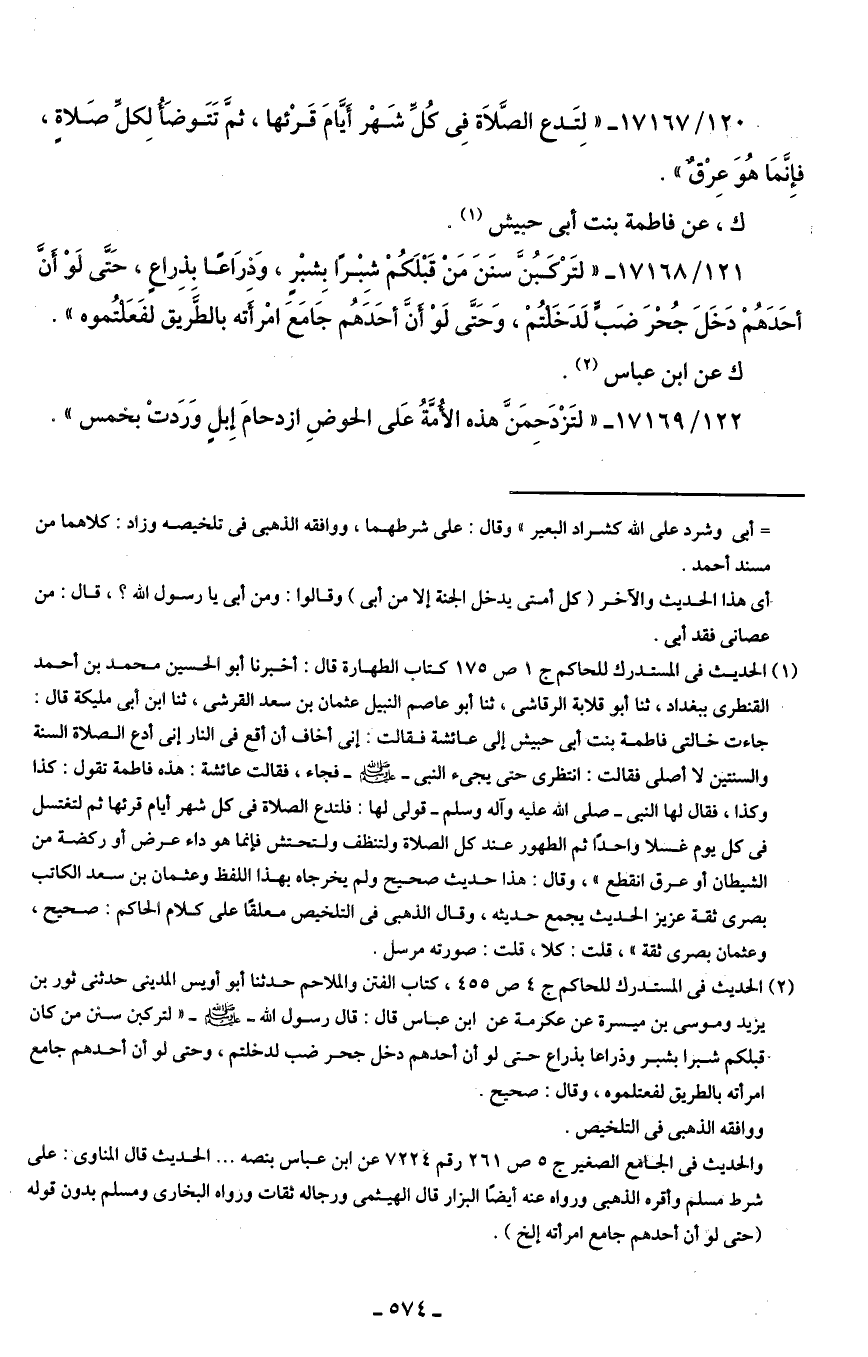 ١٧١٦٧/١٢٠ـ « لِتَدع الصَّلَاة فِى كُلِّ شَهْر أَيَّامَ قَرْئها ، ثمَّ تَتَوضَأُ لِكلِّ صَلاةٍ ،
فإِنَّمَا هُوَ عِرْقٌ » .
ك ، عن فاطمة بنت أبى حبيش (١) .
١٧١٦٨/١٢١ـ « لتَرْكَبُنَّ سننَ مَنْ قَبْلَكُمْ شِبْرًا بِشبْرٍ ، وَذِرَاعًا بِذِراعٍ ، حَتَّى لو أنَّ
أحَدَهُمْ دَخَلَ جُحْرَ ضَبٍّ لَدَخَلْتُمْ ، وَحَتَّى لَوْ أنَّ أحدَهُم جَامَعَ امْرأته بالطَّريق لفَعَلْتُموه » .
ك عن ابن عباس (٢) .
١٧١٦٩/١٢٢ـ « لتَزْدَحِمَنَّ هذه الأمَّةُ عَلى الحوضِ ازدحامَ إبلٍ وَرَدتْ بخمس » .
= أبى وشرد على الله كشراد البعير » وقال : على شرطهما ، ووافقه الذهبى فى تلخيصه وزاد : كلاهما من
مسند أحمد .
أى هذا الحديث والآخر ( كل أمتى يدخل الجنة إلا من أبى ) وقالوا : ومن أبى يا رسول الله ؟ ، قال : من
عصانى فقد أبى .
(١) الحديث فى المستدرك للحاكم ج ١ ص ١٧٥ كتاب الطهارة قال : أخبرنا أبو الحسين محمد بن أحمد
القنطرى ببغداد ، ثنا أبو قلابة الرقاشى ، ثنا أبو عاصم النبيل عثمان بن سعد القرشى ، ثنا ابن أبى مليكة قال :
جاءت خالتى فاطمة بنت أبى حبيش إلى عائشة فقالت : إنى أخاف أن أقع فى النار إنى أدع الصلاة السنة
والسنتين لا أصلى فقالت : انتظرى حتى يجىء النبى ـ ﷺ ـ فجاء ، فقالت عائشة : هذه فاطمة تقول : كذا
وكذا ، فقال لها النبى ـ صلى الله عليه وآله وسلم ـ قولى لها : فلتدع الصلاة فى كل شهر أيام قرئها ثم لتغتسل
فى كل يوم غسلا واحدًا ثم الطهور عند كل الصلاة ولتنظف ولتحتش فإنما هو داء عرض أو ركضة من
الشيطان أو عرق انقطع » ، وقال : هذا حديث صحيح ولم يخرجاه بهذا اللفظ وعثمان بن سعد الكاتب
بصرى ثقة عزيز الحديث يجمع حديثه ، وقال الذهبى فى التلخيص معلقًا على كلام الحاكم : صحيح ،
وعثمان بصرى ثقة » ، قلت : كلا ، قلت : صورته مرسل .
(٢) الحديث فى المستدرك للحاكم ج ٤ ص ٤٥٥ ، كتاب الفتن والملاحم حدثنا أبو أويس المدينى حدثنى ثور بن
يزيد وموسى بن ميسرة عن عكرمة عن ابن عباس قال : قال رسول الله ـ ﷺ ـ « لتركبن سنن من كان
قبلكم شبرا بشبر وذراعا بذراع حتى لو أن أحدهم دخل جحر ضب لدخلتم ، وحتى لو أن أحدهم جامع
امرأته بالطريق لفعتلموه ، وقال : صحيح .
ووافقه الذهبى فى التلخيص .
والحديث فى الجامع الصغير ج ٥ ص ٢٦١ رقم ٧٢٢٤ عن ابن عباس بنصه ... الحديث قال المناوى : على
شرط مسلم وأقره الذهبى ورواه عنه أيضًا البزار قال الهيثمى ورجاله ثقات ورواه البخارى ومسلم بدون قوله
(حتى لو أن أحدهم جامع امرأته إلخ ) .
ـ ٥٧٤ ـ